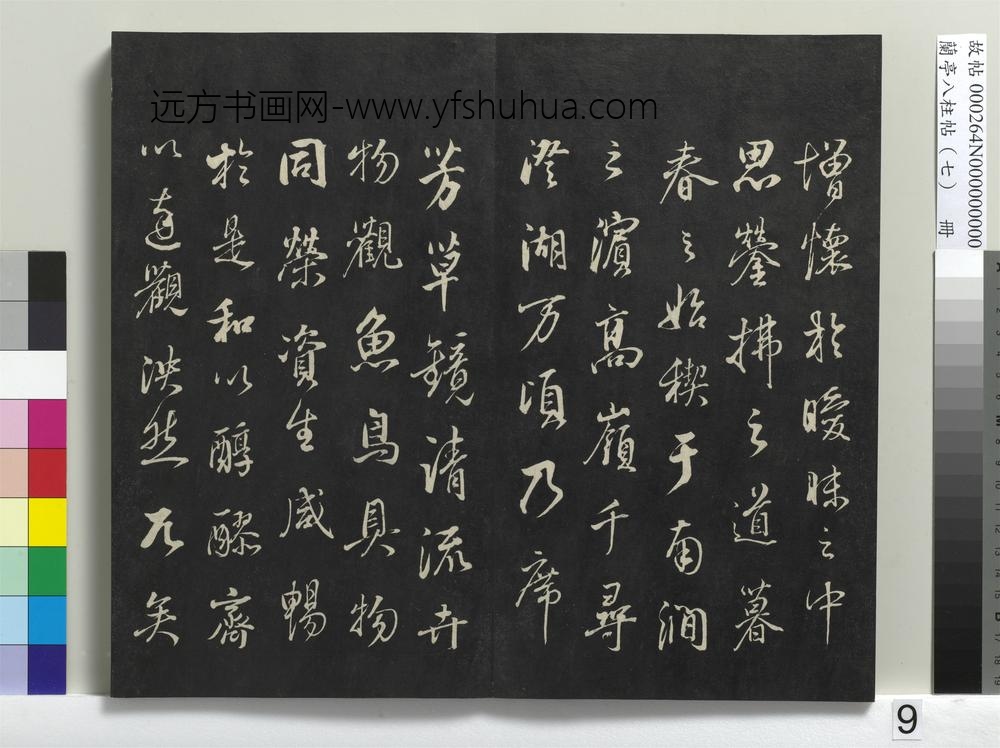 远方书画网-www.yfshuhua.com
增懷於曖昧之中
思鎣拂之道暮
春之始禊于南澗
之濱高嶺千尋
澄湖万頃乃席
芳草鏡清流卉
物觀魚鳥具物
同榮資生咸暢
於是和以醇醪齊
以達觀泱然兀矣
故帖 000264N000000000
蘭亭八柱帖（七） 冊
9